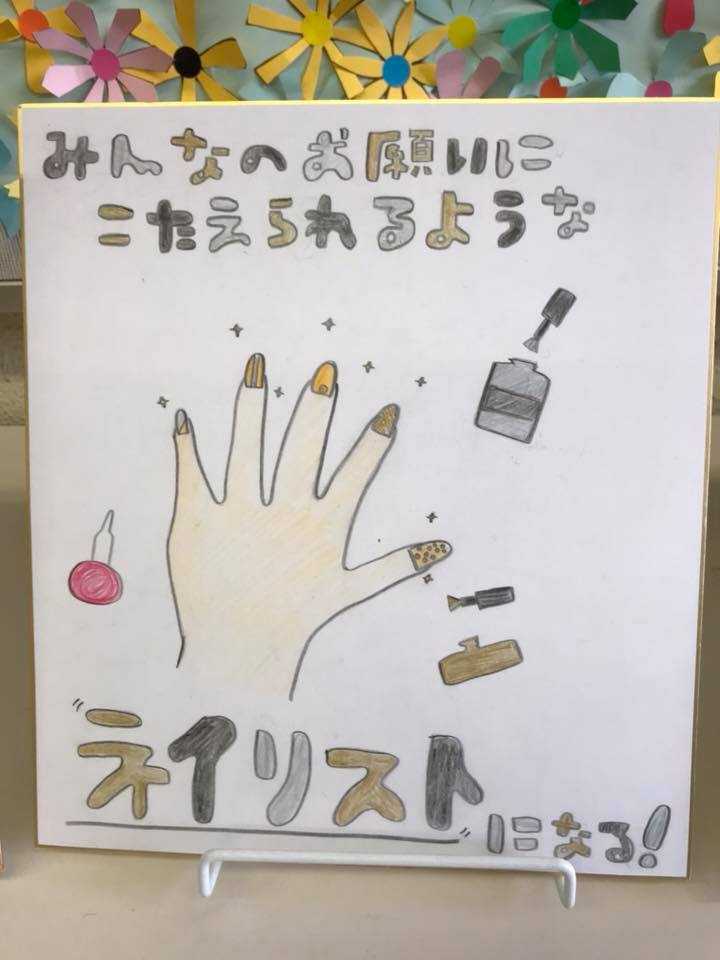 みんなのお願いに
こたえられるような
"ネイリスト"になる!